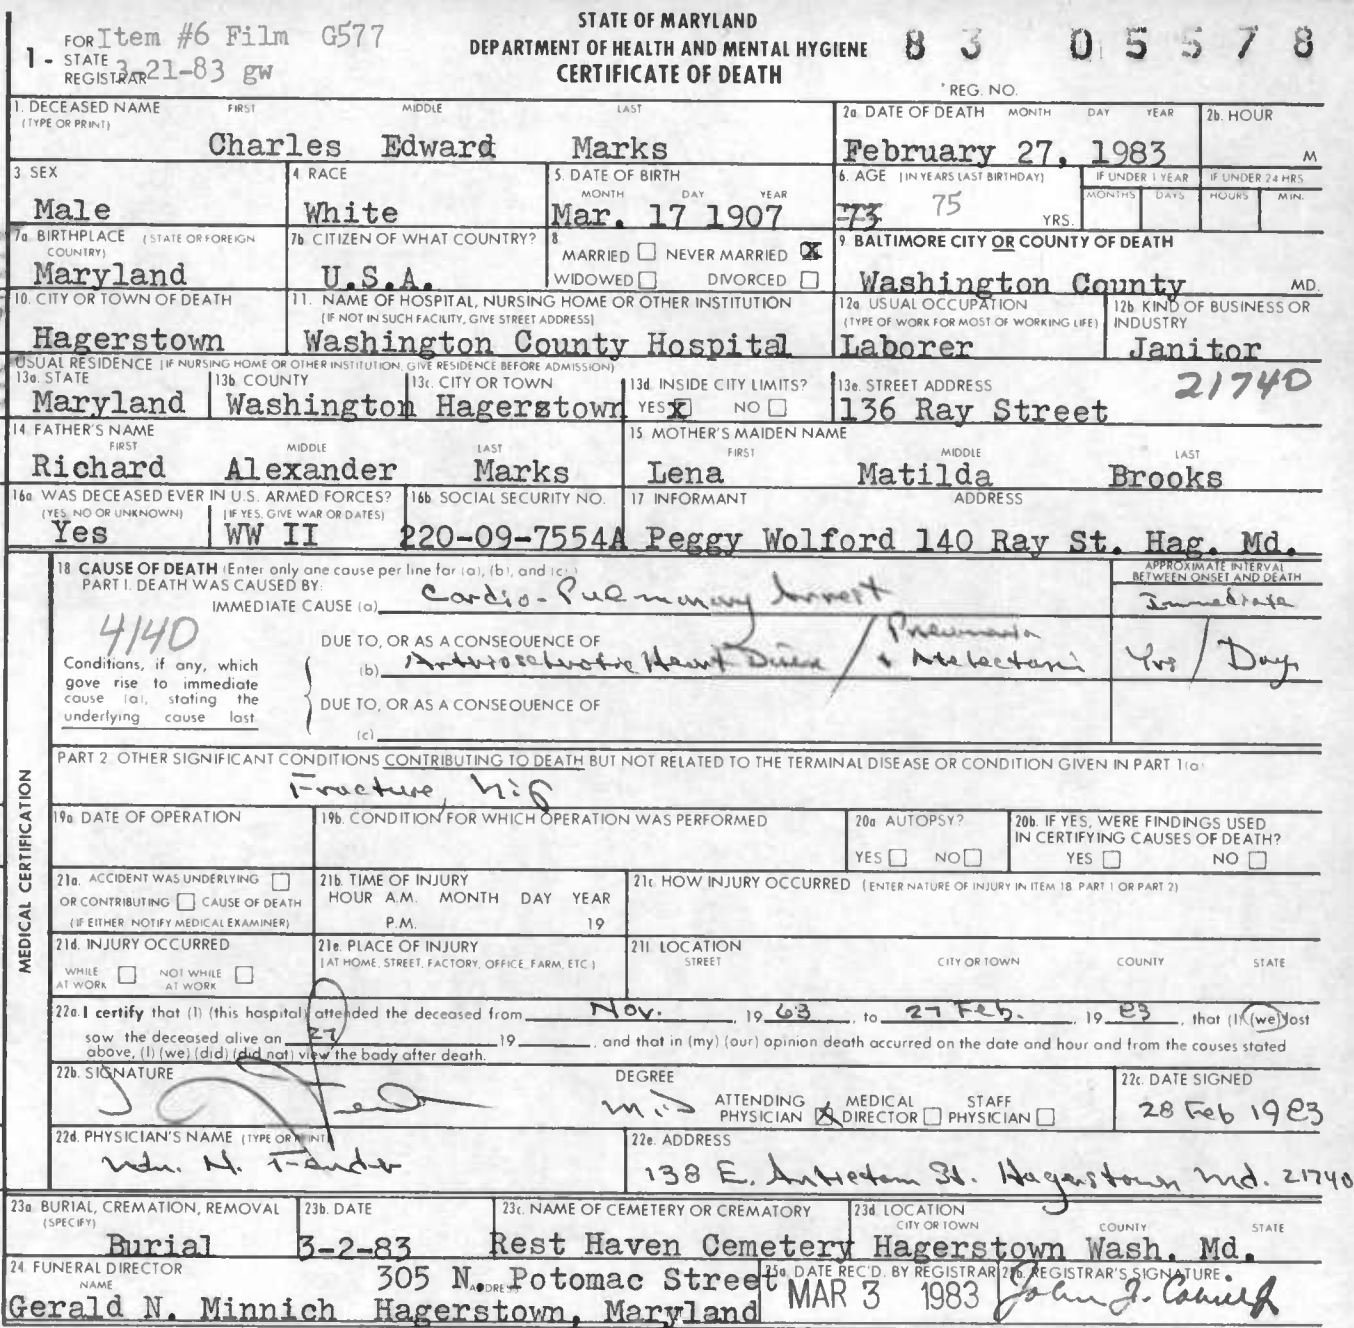 STATE OF MARYLAND
DEPARTMENT OF HEALTH AND MENTAL HYGIENE
CERTIFICATE OF DEATH
1 - FOR STATE REGISTRAR
Item #6 Film G577
3-21-83 gw
83 05578
REG. NO.
1. DECEASED NAME (TYPE OR PRINT) FIRST MIDDLE LAST
Charles Edward Marks
2a DATE OF DEATH MONTH DAY YEAR
February 27, 1983
2b. HOUR
M
3 SEX
Male
4. RACE
White
5. DATE OF BIRTH MONTH DAY YEAR
Mar. 17 1907
6. AGE (IN YEARS LAST BIRTHDAY)
73 75 YRS.
IF UNDER 1 YEAR MONTHS DAYS
IF UNDER 24 HRS HOURS MIN.
7a BIRTHPLACE (STATE OR FOREIGN COUNTRY)
Maryland
7b CITIZEN OF WHAT COUNTRY?
U.S.A.
8 MARRIED NEVER MARRIED X
WIDOWED DIVORCED
9 BALTIMORE CITY OR COUNTY OF DEATH
Washington County MD.
10. CITY OR TOWN OF DEATH
Hagerstown
11. NAME OF HOSPITAL, NURSING HOME OR OTHER INSTITUTION
(IF NOT IN SUCH FACILITY, GIVE STREET ADDRESS)
Washington County Hospital
12a USUAL OCCUPATION
(TYPE OF WORK FOR MOST OF WORKING LIFE)
Laborer
12b KIND OF BUSINESS OR INDUSTRY
Janitor
USUAL RESIDENCE (IF NURSING HOME OR OTHER INSTITUTION, GIVE RESIDENCE BEFORE ADMISSION)
13a. STATE
Maryland
13b COUNTY
Washington
13c. CITY OR TOWN
Hagerstown
13d INSIDE CITY LIMITS?
YES X NO
13e. STREET ADDRESS
136 Ray Street
21740
14 FATHER'S NAME FIRST MIDDLE LAST
Richard Alexander Marks
15 MOTHER'S MAIDEN NAME FIRST MIDDLE LAST
Lena Matilda Brooks
16a WAS DECEASED EVER IN U.S. ARMED FORCES?
(YES, NO OR UNKNOWN) (IF YES, GIVE WAR OR DATES)
Yes WW II
16b SOCIAL SECURITY NO.
220-09-7554A
17 INFORMANT ADDRESS
Peggy Wolford 140 Ray St. Hag. Md.
MEDICAL CERTIFICATION
18 CAUSE OF DEATH (Enter only one cause per line for (a), (b), and (c).)
PART I. DEATH WAS CAUSED BY:
APPROXIMATE INTERVAL BETWEEN ONSET AND DEATH
IMMEDIATE CAUSE (a) Cardio-Pulmonary Arrest
Immediate
4140
DUE TO, OR AS A CONSEQUENCE OF
(b) Arteriosclerotic Heart Disease / Pneumonia + Atelectasis
Yrs / Days
Conditions, if any, which gave rise to immediate cause (a), stating the underlying cause last
DUE TO, OR AS A CONSEQUENCE OF
(c)
PART 2 OTHER SIGNIFICANT CONDITIONS CONTRIBUTING TO DEATH BUT NOT RELATED TO THE TERMINAL DISEASE OR CONDITION GIVEN IN PART 1(a)
Fracture, hip
19a DATE OF OPERATION
19b. CONDITION FOR WHICH OPERATION WAS PERFORMED
20a AUTOPSY?
YES NO
20b. IF YES, WERE FINDINGS USED IN CERTIFYING CAUSES OF DEATH?
YES NO
21a. ACCIDENT WAS UNDERLYING
OR CONTRIBUTING CAUSE OF DEATH
(IF EITHER NOTIFY MEDICAL EXAMINER)
21b. TIME OF INJURY
HOUR A.M. MONTH DAY YEAR
P.M. 19
21c. HOW INJURY OCCURRED (ENTER NATURE OF INJURY IN ITEM 18 PART 1 OR PART 2)
21d. INJURY OCCURRED
WHILE AT WORK NOT WHILE AT WORK
21e. PLACE OF INJURY
(AT HOME, STREET, FACTORY, OFFICE, FARM, ETC.)
21f. LOCATION
STREET CITY OR TOWN COUNTY STATE
22a. I certify that (I) (this hospital) attended the deceased from Nov. 19 63, to 27 Feb. 19 83, that (I) (we) last
saw the deceased alive on 27 19 , and that in (my) (our) opinion death occurred on the date and hour and from the causes stated
above, (I) (we) (did) (did not) view the body after death.
22b. SIGNATURE
DEGREE
M.D
ATTENDING PHYSICIAN X MEDICAL DIRECTOR STAFF PHYSICIAN
22c. DATE SIGNED
28 Feb 1983
22d. PHYSICIAN'S NAME (TYPE OR PRINT)
22e. ADDRESS
138 E. Antietam St. Hagerstown Md. 21740
23a BURIAL, CREMATION, REMOVAL (SPECIFY)
Burial
23b. DATE
3-2-83
23c. NAME OF CEMETERY OR CREMATORY
Rest Haven Cemetery
23d LOCATION CITY OR TOWN COUNTY STATE
Hagerstown Wash. Md.
24 FUNERAL DIRECTOR
NAME ADDRESS
Gerald N. Minnich
305 N. Potomac Street
Hagerstown, Maryland
25a DATE REC'D. BY REGISTRAR
MAR 3 1983
25b. REGISTRAR'S SIGNATURE
John J.